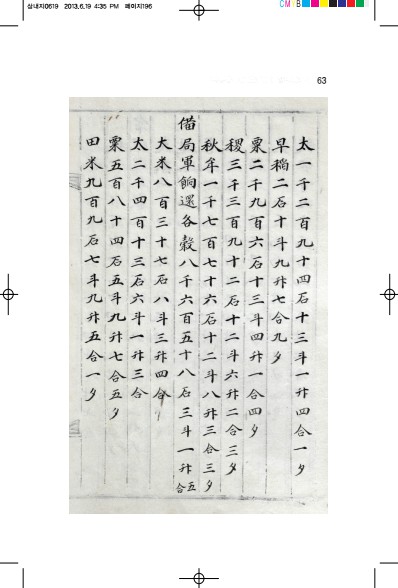 삼내지0619 2013.6.19 4:35 PM 페이지196
CM B
63
太一千二百九十四石十三斗一升四合一夕
早稻二石十斗九升七合九夕
粟二千九百六石十三斗四升一合四夕
稷三千三百九十二石十二斗六升二合三夕
秋牟一千七百七十六石十二斗八升三合三夕
備局軍餉還各穀八千六百五十八石三斗一升五合
大米八百三十七石八斗三升四合
太二千四百十三石六斗一升三合
粟五百八十四石五斗九升七合五夕
田米九百九石七斗九升五合一夕